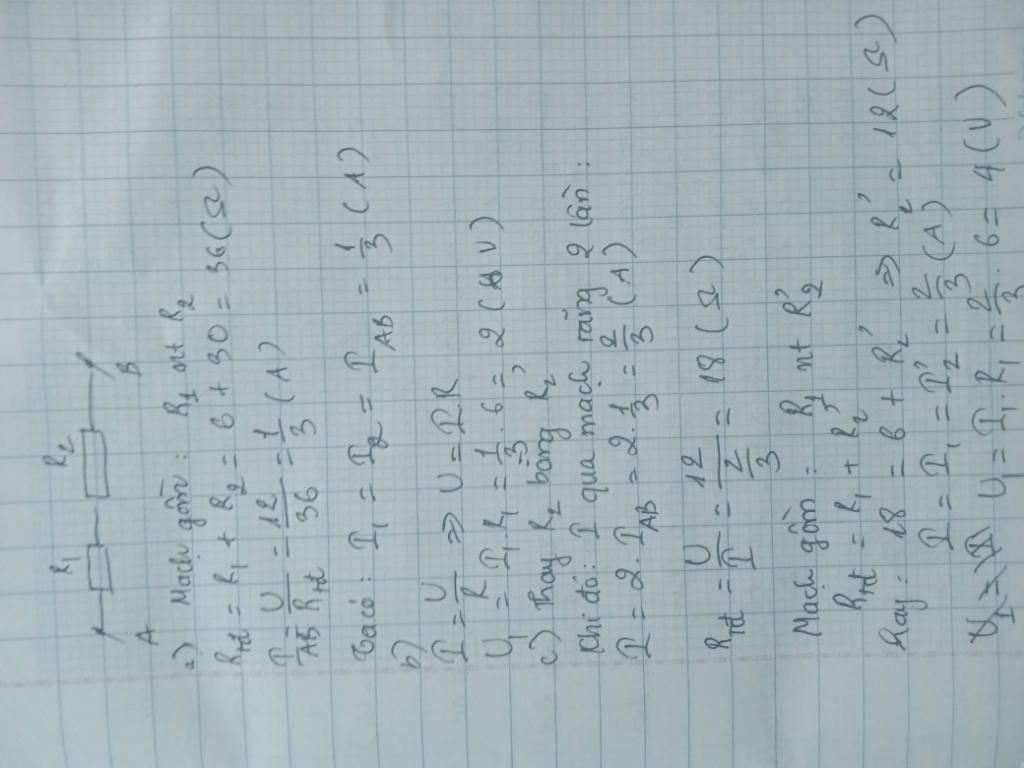 R₁ R₂
A B
a) Mạch gồm : R₁ nt R₂
Rtđ = R₁ + R₂ = 6 + 30 = 36 (Ω)
I_AB = U/Rtđ = 12/36 = 1/3 (A)
Ta có : I₁ = I₂ = I_AB = 1/3 (A)
b)
I = U/R => U = IR
U₁ = I₁R₁ = 1/3 . 6 = 2 (V)
c) Thay R₂ bằng R₂'
Khi đó : I qua mạch tăng 2 lần :
I = 2. I_AB = 2. 1/3 = 2/3 (A)
Rtđ = U/I = 12/(2/3) = 18 (Ω)
Mạch gồm : R₁ nt R₂'
Rtđ = R₁ + R₂'
hay : 18 = 6 + R₂' => R₂' = 12 (Ω)
I = I₁ = I₂' = 2/3 (A)
U₁ = I₁. R₁ = 2/3 . 6 = 4 (V)